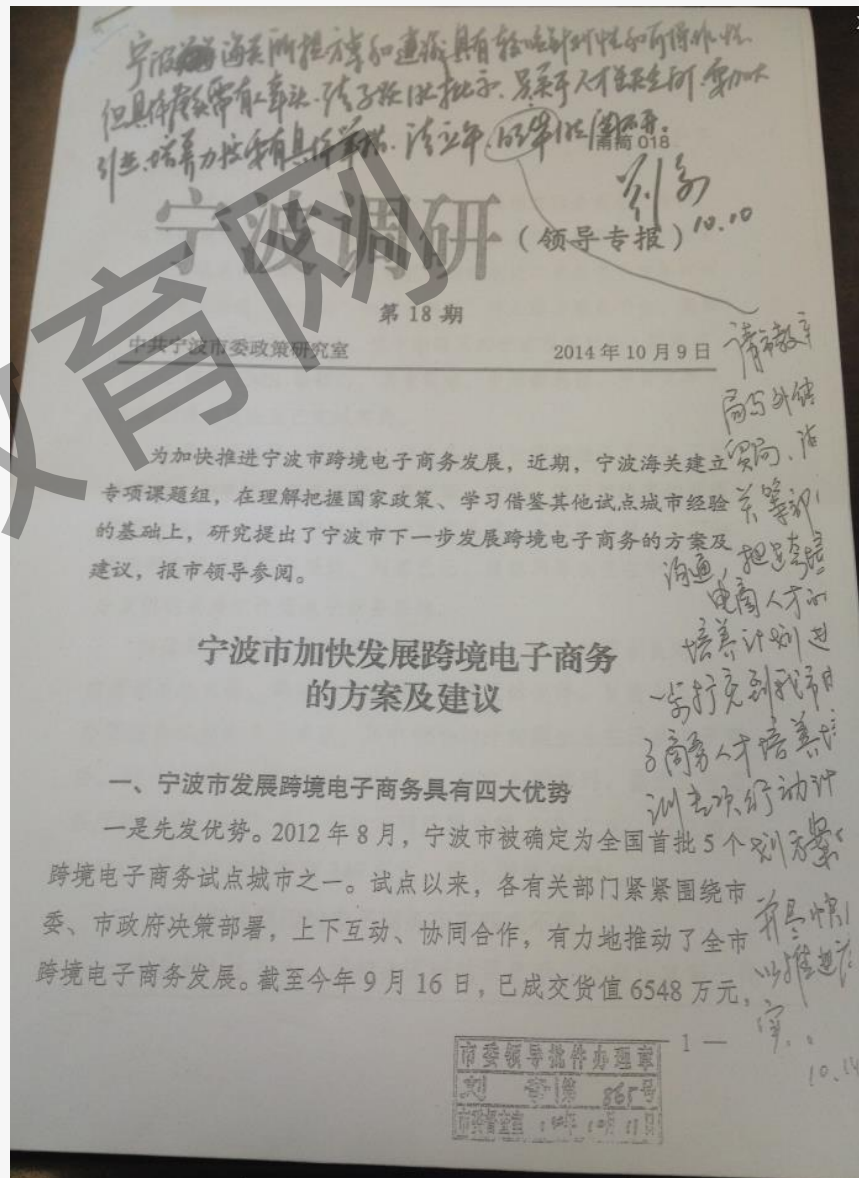 宁波海关所提方案和建议具有较强针对性和可操作性.
但具体需有人牵头.
引进、培养力度要有具体举措.
甬简018
刘奇
10.10
宁波调研(领导专报)
第18期
中共宁波市委政策研究室 2014年10月9日
为加快推进宁波市跨境电子商务发展，近期，宁波海关建立
专项课题组，在理解把握国家政策、学习借鉴其他试点城市经验
的基础上，研究提出了宁波市下一步发展跨境电子商务的方案及
建议，报市领导参阅。
宁波市加快发展跨境电子商务
的方案及建议
一、宁波市发展跨境电子商务具有四大优势
一是先发优势。2012年8月，宁波市被确定为全国首批5个
跨境电子商务试点城市之一。试点以来，各有关部门紧紧围绕市
委、市政府决策部署，上下互动、协同合作，有力地推动了全市
跨境电子商务发展。截至今年9月16日，已成交货值6548万元，
— 1 —
请市教育
局与外经
贸局、海
关等部门
沟通，把跨境
电商人才的
培养计划进
一步扩充到我市电
子商务人才培养培
训专项行动计
划方案
并尽快
以推进落
实。
10.14
市委领导批件办理章
刘奇 第 865号
教育网